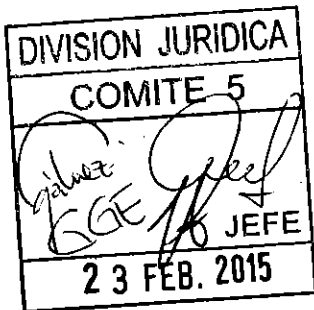 DIVISION JURIDICA
COMITE 5
Gálvez
GGE
JEFE
23 FEB. 2015